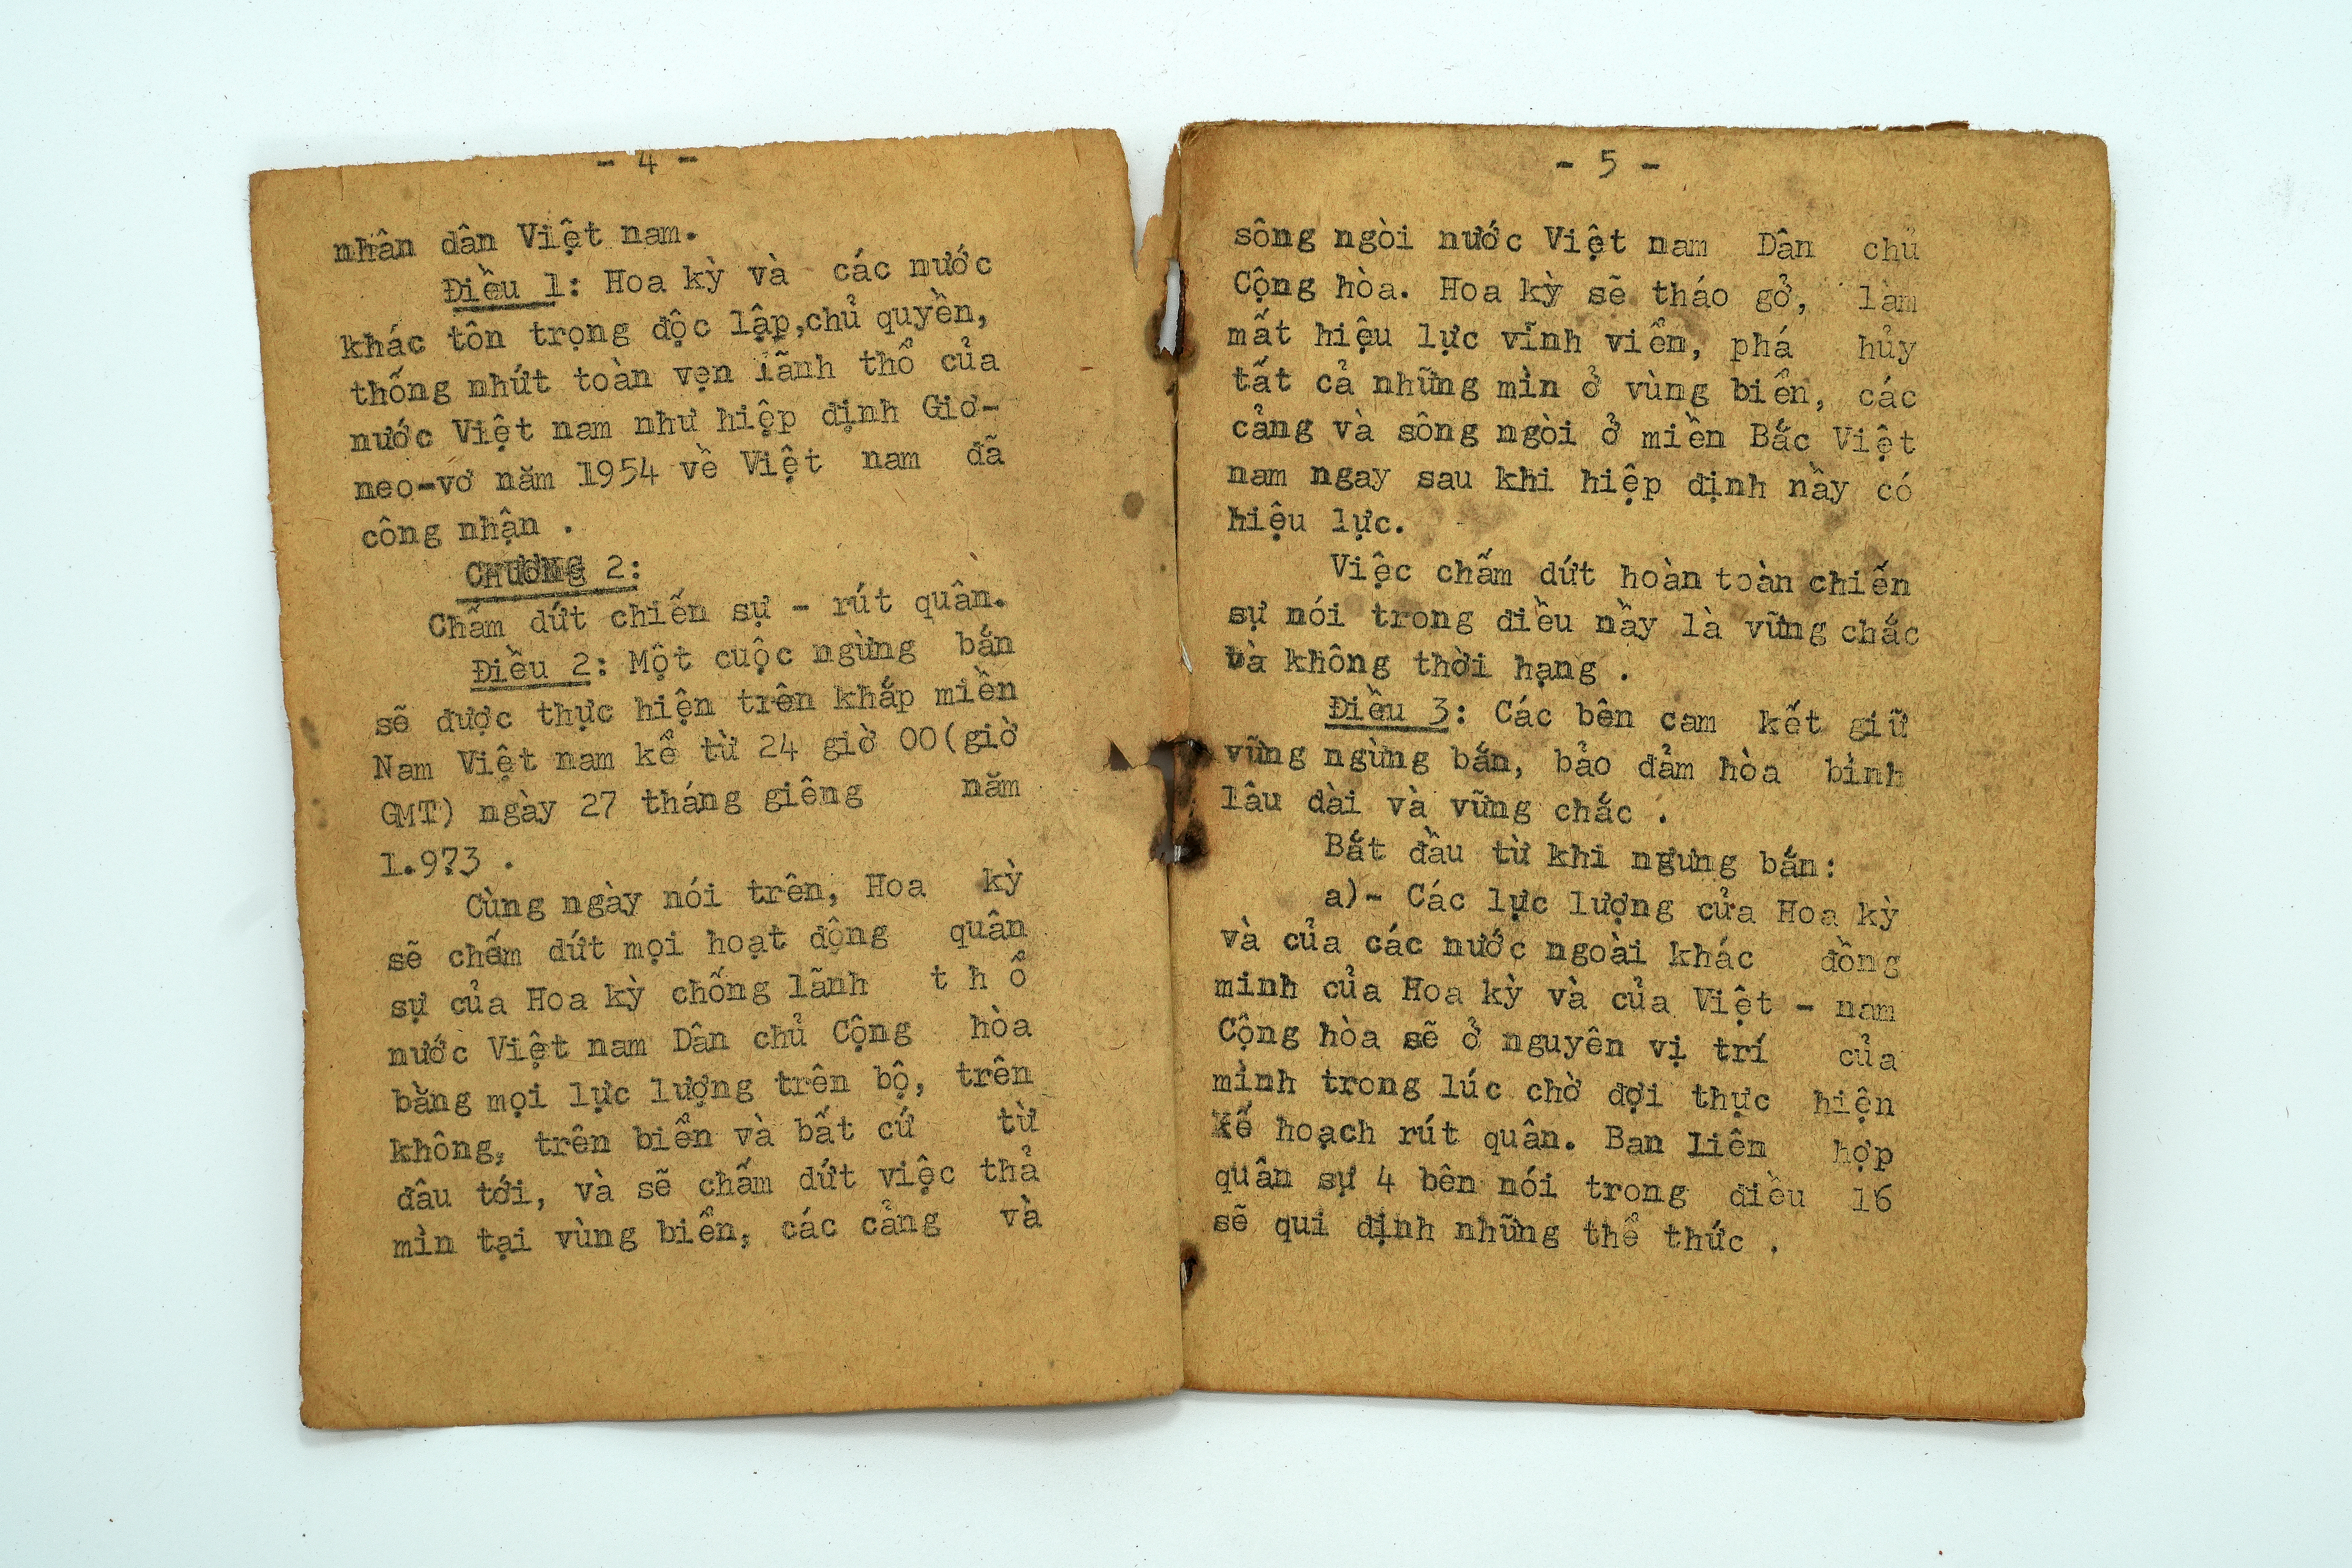 - 4 -
nhân dân Việt nam.
Điều 1: Hoa kỳ và các nước
khác tôn trọng độc lập,chủ quyền,
thống nhứt toàn vẹn lãnh thổ của
nước Việt nam như hiệp định Giơ-
neo-vơ năm 1954 về Việt nam đã
công nhận .
CHƯƠNG 2:
Chấm dứt chiến sự - rút quân.
Điều 2: Một cuộc ngừng bắn
sẽ được thực hiện trên khắp miền
Nam Việt nam kể từ 24 giờ 00(giờ
GMT) ngày 27 tháng giêng năm
1.973 .
Cùng ngày nói trên, Hoa kỳ
sẽ chấm dứt mọi hoạt động quân
sự của Hoa kỳ chống lãnh t h ổ
nước Việt nam Dân chủ Cộng hòa
bằng mọi lực lượng trên bộ, trên
không, trên biển và bất cứ từ
đâu tới, và sẽ chấm dứt việc thả
mìn tại vùng biển, các cảng và
- 5 -
sông ngòi nước Việt nam Dân chủ
Cộng hòa. Hoa kỳ sẽ tháo gở, làm
mất hiệu lực vĩnh viễn, phá hủy
tất cả những mìn ở vùng biển, các
cảng và sông ngòi ở miền Bắc Việt
nam ngay sau khi hiệp định nầy có
hiệu lực.
Việc chấm dứt hoàn toàn chiến
sự nói trong điều nầy là vững chắc
và không thời hạng .
Điều 3: Các bên cam kết giữ
vững ngừng bắn, bảo đảm hòa bình
lâu dài và vững chắc .
Bắt đầu từ khi ngưng bắn:
a)- Các lực lượng của Hoa kỳ
và của các nước ngoài khác đồng
minh của Hoa kỳ và của Việt - nam
Cộng hòa sẽ ở nguyên vị trí của
mình trong lúc chờ đợi thực hiện
kế hoạch rút quân. Ban liên hợp
quân sự 4 bên nói trong điều 16
sẽ qui định những thể thức .